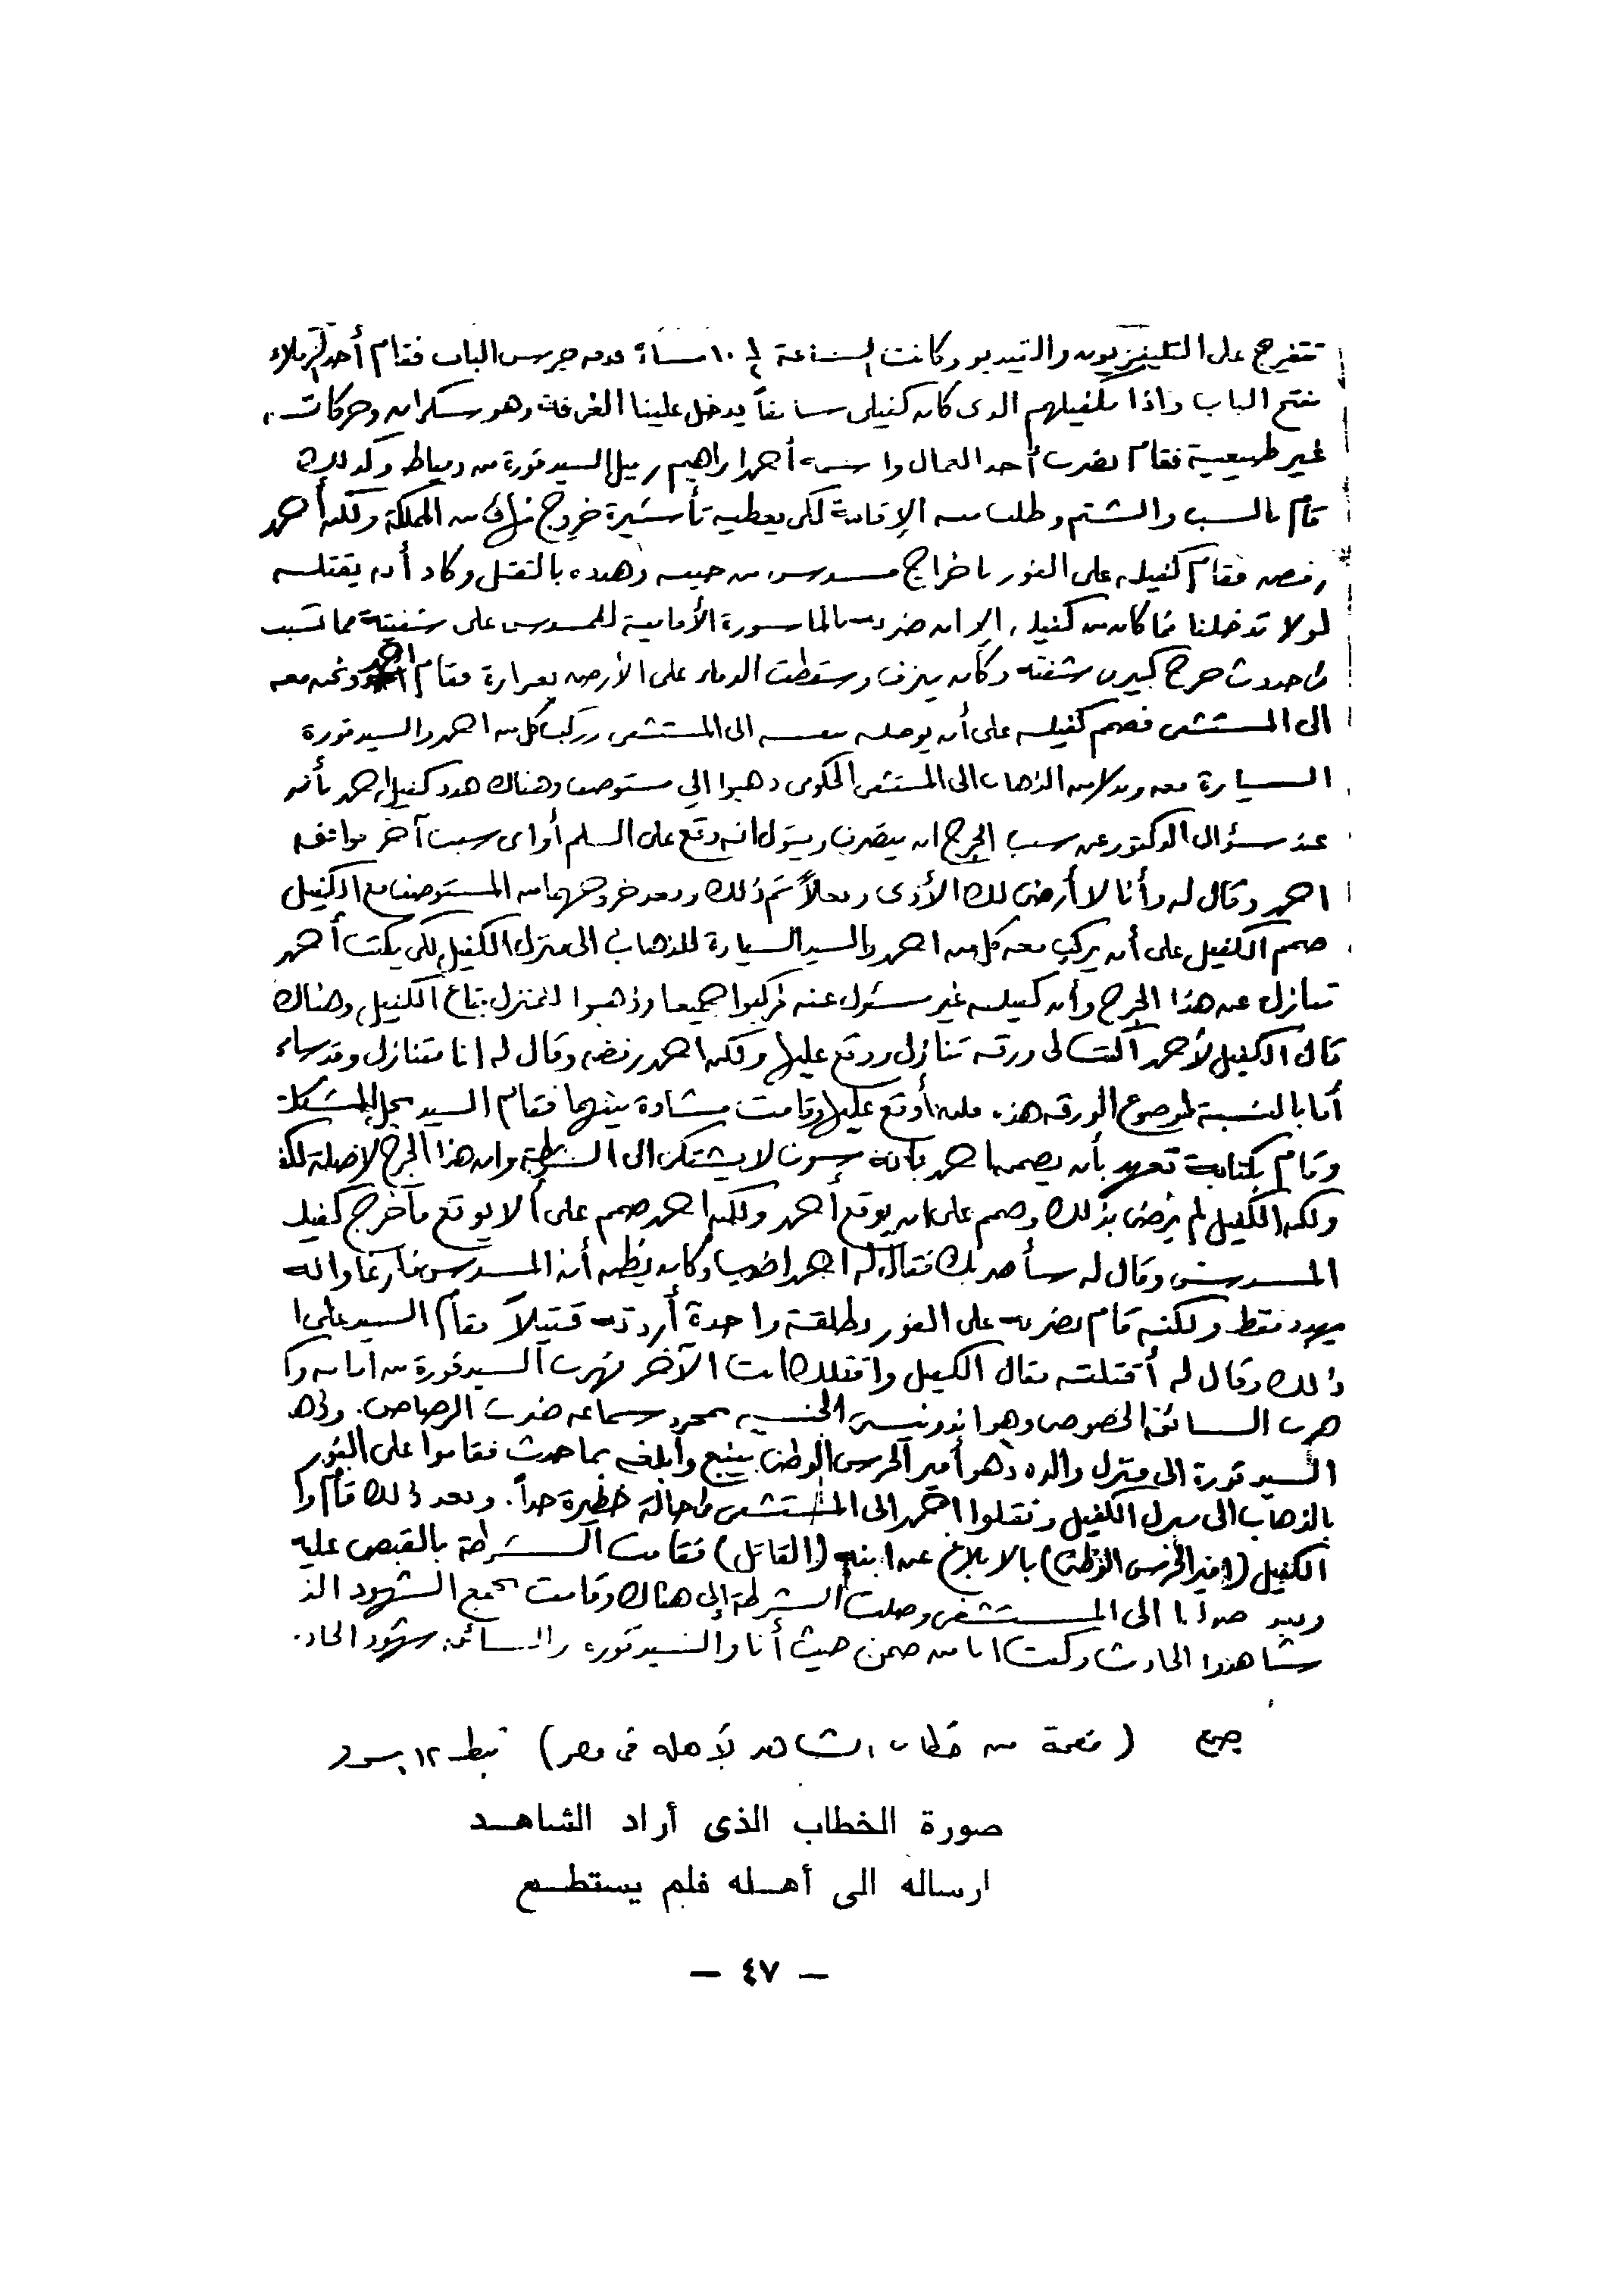 تتفرج على التليفزيون والفيديو وكانت الساعة ١٠ مساءً جرس الباب فقام أحد الزملاء
بفتح الباب وإذا بكفيلهم الذى كان كفيلى سابقاً يدخل علينا الغرفة وهو سكران وحركات
غير طبيعية فقام بضرب أحد العمال واسمه أحمد ابراهيم زميل السيد قورة من دمياط وكذلك
قام بالسب والشتم وطلب منه الإقامة لكى يعطيه تأشيرة خروج من المملكة ولكن أحمد
رفض فقام كفيله على الفور باخراج مسدس من جيبه وهدده بالقتل وكاد أن يقتله
لولا تدخلنا فما كان من كفيله إلا ان ضربه بالماسورة الأمامية للمسدس على شفتيه مما تسبب
فى حدوث جرح كبير فى شفته وكان ينزف وسقطت الدماء على الأرض بغزارة فقام احمد ونحن معه
الى المستشفى فصمم كفيله على أن يوصله معه الى المستشفى وركب كل من احمد والسيد قورة
السيارة معه وبدلا من الذهاب الى المستشفى الحكومى ذهبوا الى مستوصف وهناك هدد كفيل احمد بأنه
عند سؤال الدكتور عن سبب الجرح ان يتصرف ويقول انه وقع على السلم أو اى سبب آخر فوافقه
احمد وقال له وأنا لا أرضى لك الأذى وفعلاً تم ذلك وبعد خروجهما من المستوصف مع الكفيل
صمم الكفيل على أن يركب معه كل من احمد والسيد السيارة للذهاب الى منزل الكفيل لكى يكتب أحمد
تنازل عن هذا الجرح وأن كفيله غير مسئول عنه فركبوا جميعا وذهبوا للمنزل بتاع الكفيل وهناك
قال الكفيل لأحمد اكتب لى ورقة تنازل ووقع عليها ولكن احمد رفض وقال له انا متنازل وقد
أما بالنسبة لموضوع الورقه هذه فلن أوقع عليها وقامت مشادة بينهما فقام السيد بحل المشكلة
وقام بكتابة تعهد بأن يضمن احمد بأنه سوف لا يشتكى الى الشرطة وان هذا الجرح لا صلة
ولكن الكفيل لم يرضى بذلك وصمم على ان يوقع أحمد ولكن احمد صمم على ألا يوقع فأخرج كفيله
المسدس وقال له سأضربك فقال له احمد اضرب وكان يظن أن المسدس فارغا وانه
يهدد فقط ولكنه قام بضربه على الفور بطلقة واحدة أردته قتيلاً فقام السيد على
ذلك وقال له أقتلته فقال الكفيل واقتلك انت الآخر فهرب السيد قورة من امامه
هرب السائق الخصوصى وهو اندونيسى الجنسيه بمجرد سماعه ضرب الرصاص. وذهب
السيد قورة الى منزل والده وهو أمير الحرس الوطنى بينبع وأبلغه بما حدث فقاموا على الفور
بالذهاب الى منزل الكفيل ونقلوا احمد الى المستشفى فى حالة خطيرة جداً. وبعد ذلك قام والد
الكفيل (امير الحرس الوطنى) بالابلاغ عن ابنه (القاتل) فقامت الشرطة بالقبض عليه
وبعد الى المستشفى وصلت الشرطة إلى هناك وقامت بجمع الشهود
شاهدوا الحادث وكنت انا من ضمن حيث أنا والسيد قورة والسائق شهود
( من خطاب الشاهد لأهله فى مصر )
صورة الخطاب الذى أراد الشاهد
ارساله الى أهله فلم يستطع
— ٤٧ —